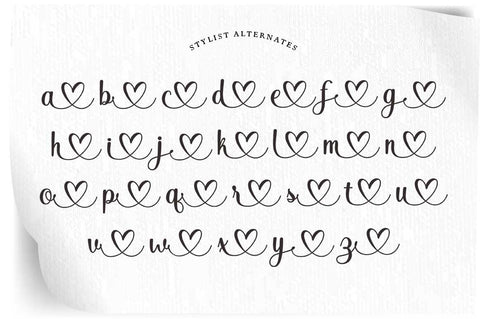 STYLIST ALTERNATES
a b c d e f g
h i j k l m n
o p q r s t u
v w x y z